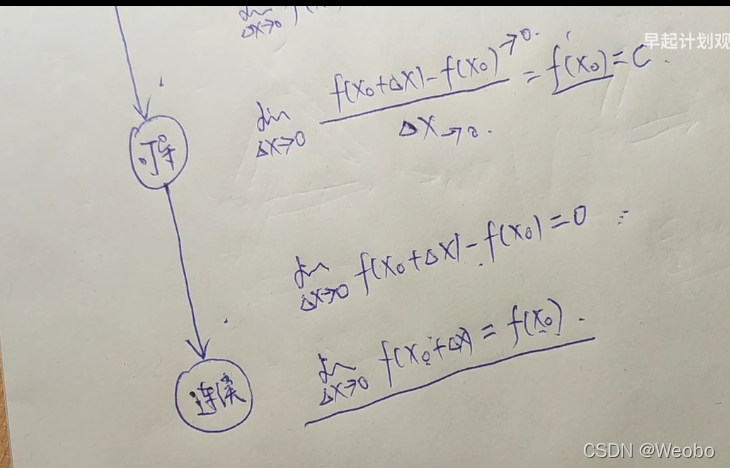 lim
Δx→0
早起计划观
lim Δx→0 f(x₀+Δx)-f(x₀)→0. / Δx→0. = f'(x₀)=C.
可导
lim Δx→0 f(x₀+Δx)-f(x₀)=0
lim Δx→0 f(x₀+Δx)=f(x₀).
连续
CSDN @Weobo